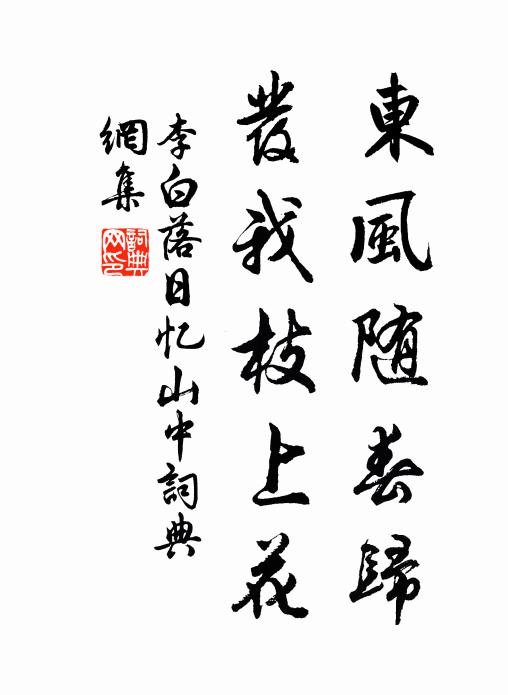 東風随春歸
發我枝上花
李白落日忆山中詞典
網集
詞典
网印